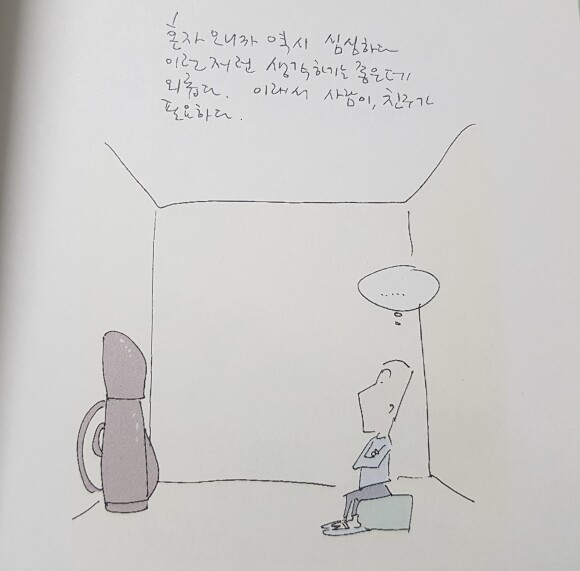 혼자 오니까 역시 심심하다
이런저런 생각하기는 좋은데
외롭다. 이래서 사람이, 친구가
필요하다.
.....